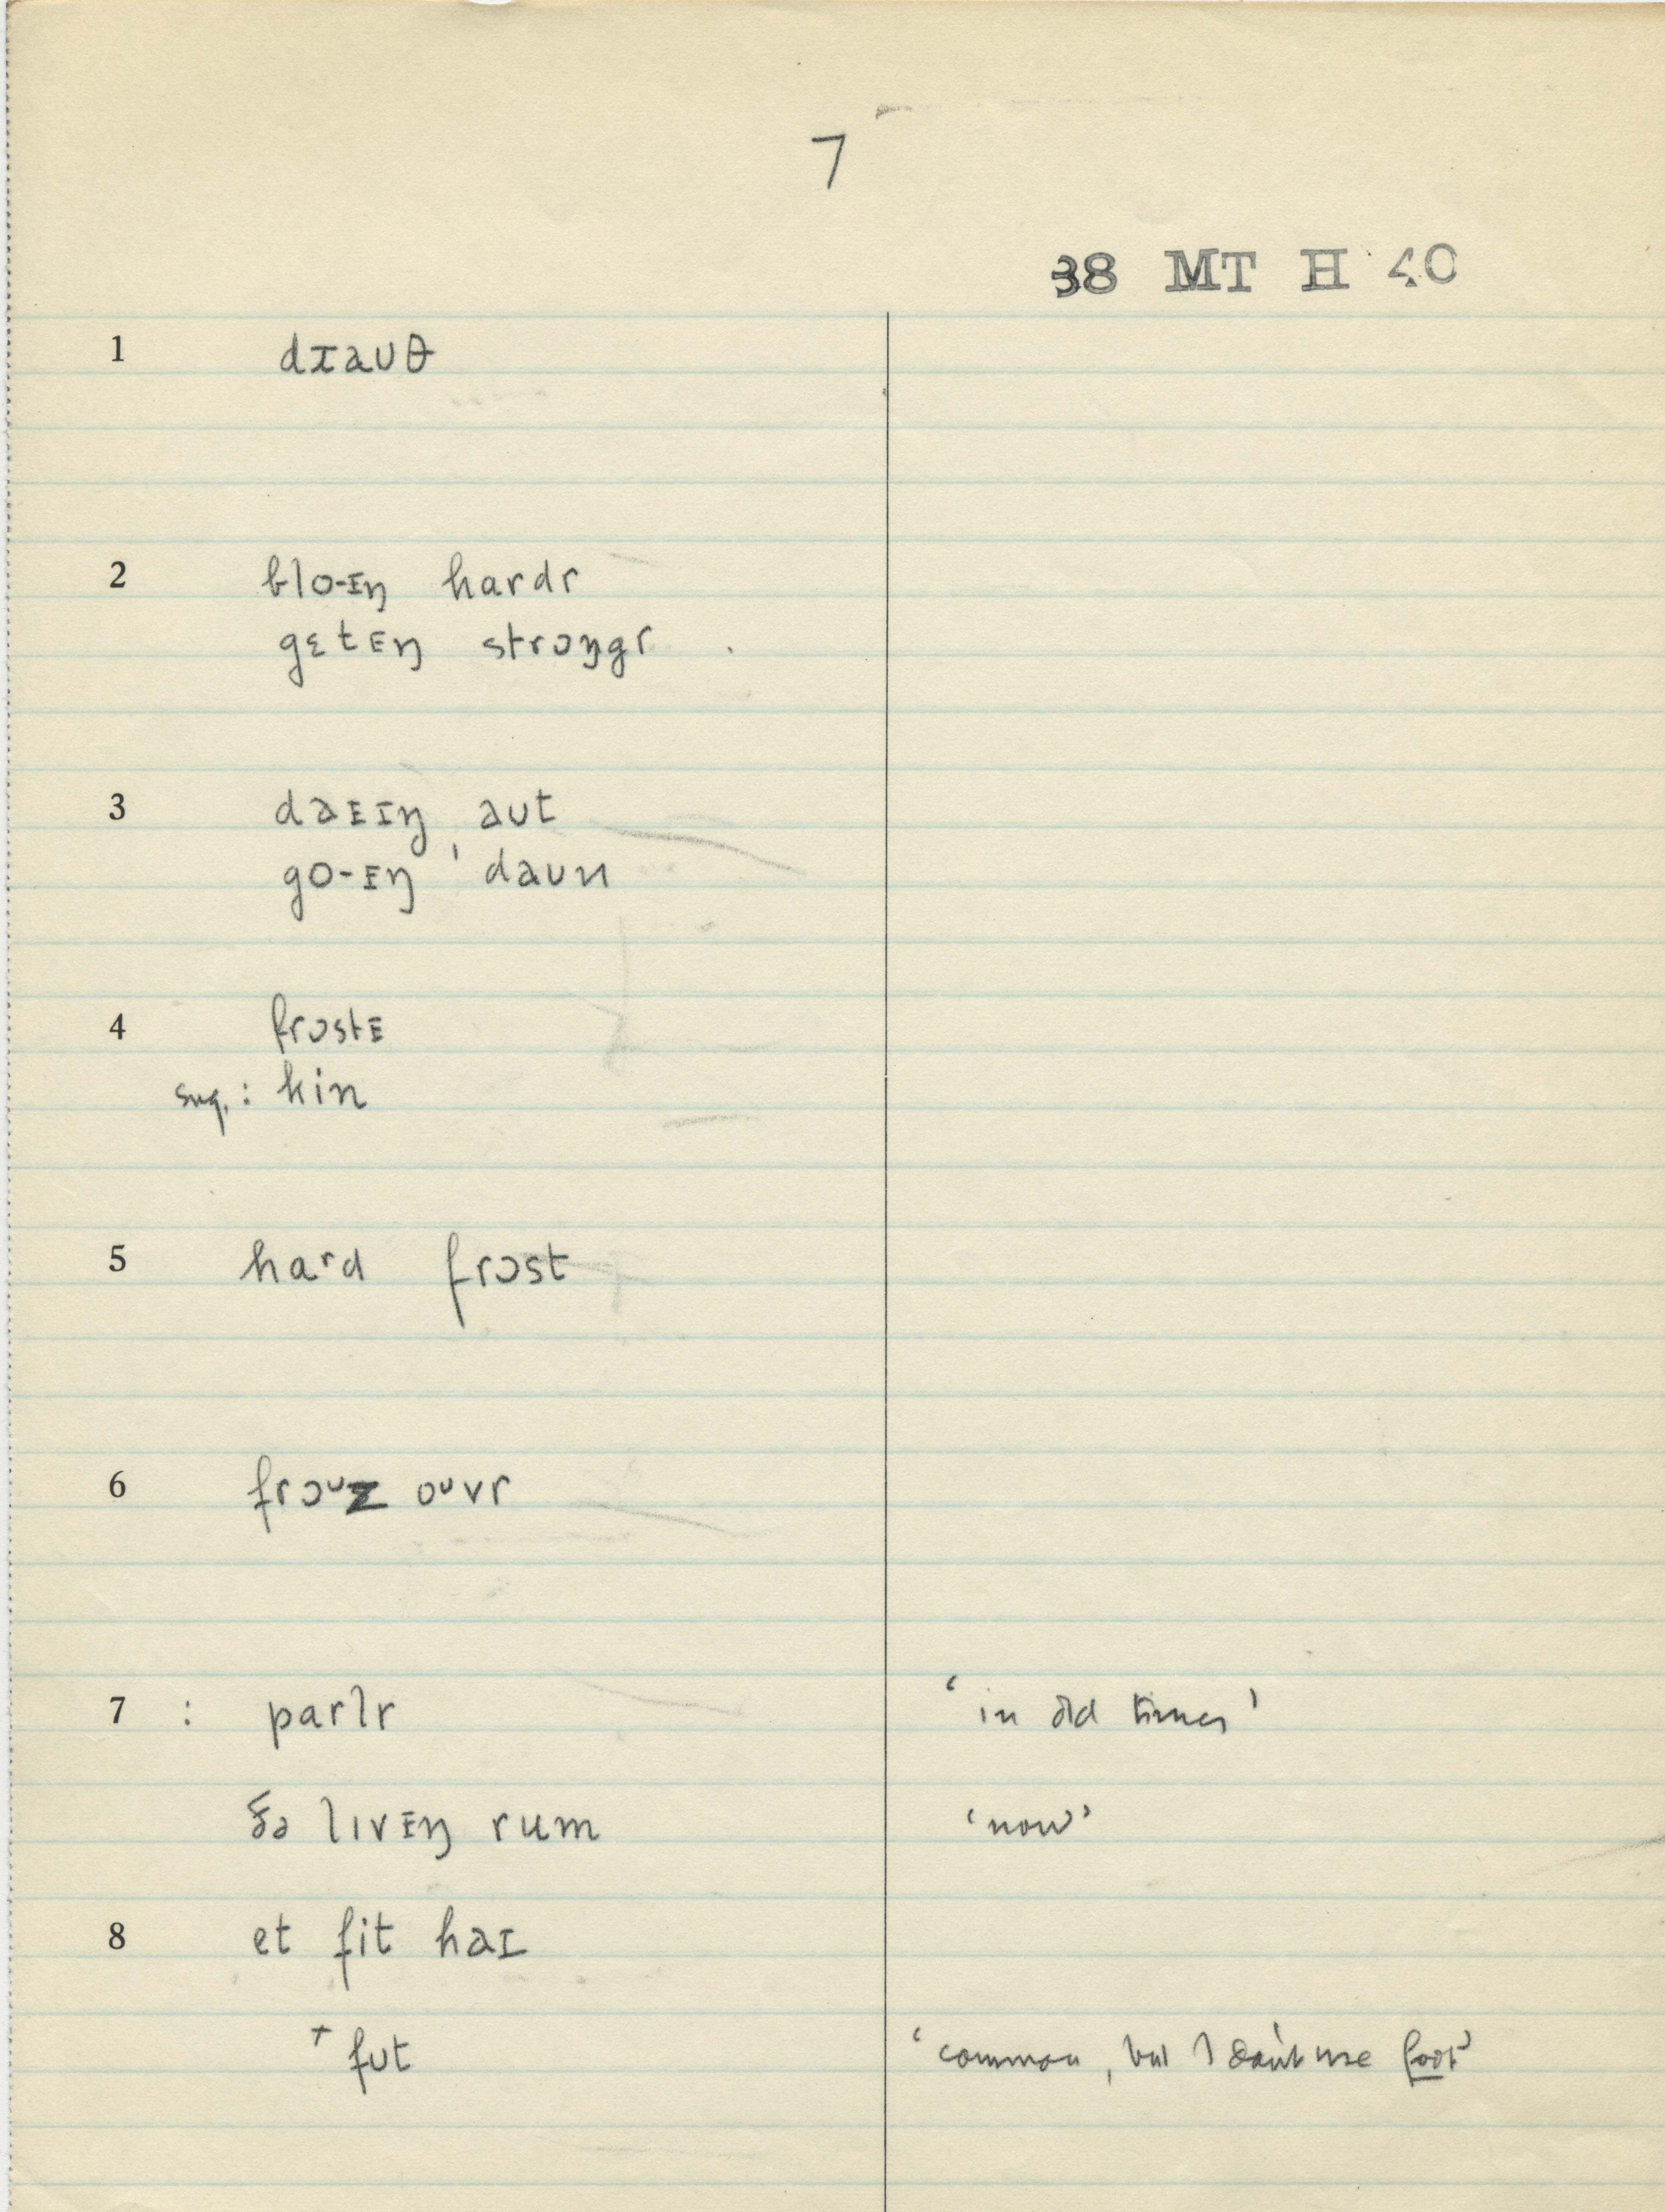 7
38 MT H 40
1 dɪauθ
2 blo-ɪŋ hardr
gɛtᴇŋ strɔŋgr
3 daᴇɪŋ aut
go-ᴇŋ ' daun
4 frɔstᴇ
sug. : kin
5 haʳd frɔst
6 frɔᶷz oᶷvr
7 : parlr ‘in old times’
ðə lɪvᴇŋ rum ‘now’
8 et fit haɪ
† fut ‘common, but I don't use foot’